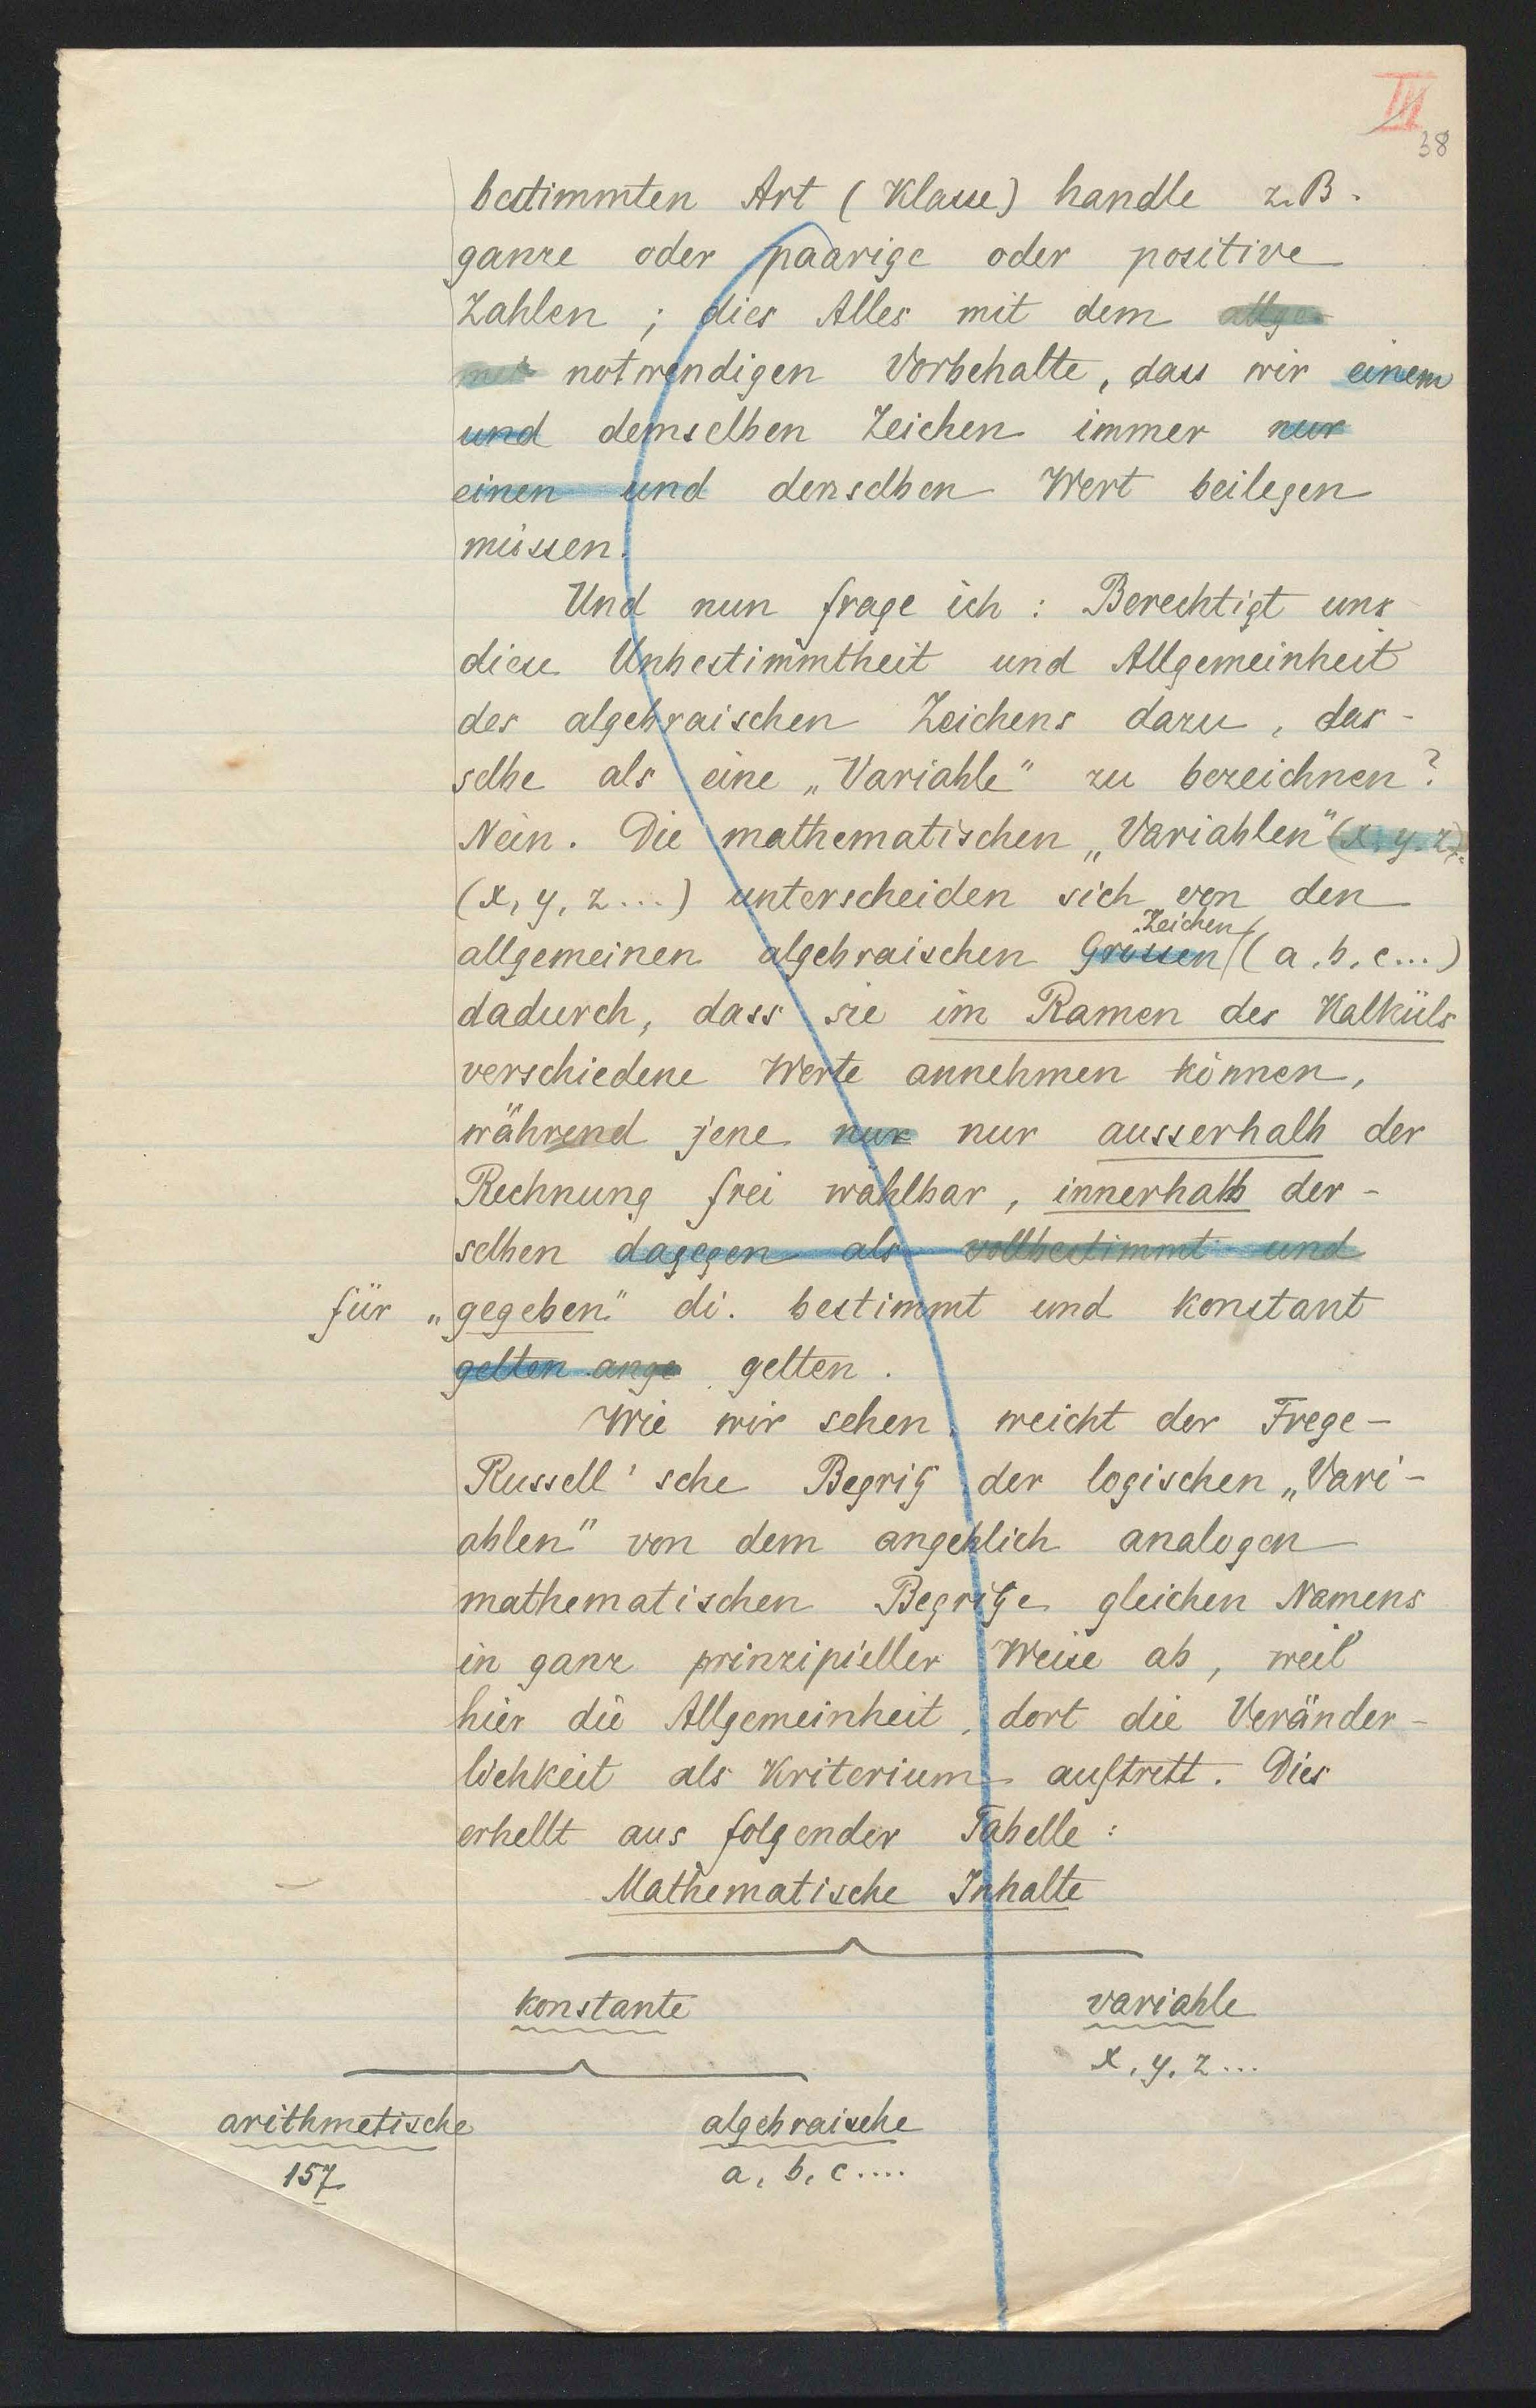 III
38
bestimmten Art (Klasse) handle z.B.
ganze oder paarige oder positive
Zahlen ; dies Alles mit dem allge-
mei notwendigen Vorbehalte, dass wir einem
und demselben Zeichen immer nur
einen und denselben Wert beilegen
müssen.
Und nun frage ich : Berechtigt uns
diese Unbestimmtheit und Allgemeinheit
des algebraischen Zeichens dazu, das-
selbe als eine „Variable" zu bezeichnen?
Nein. Die mathematischen „Variablen" (x, y, z)
(x, y, z ...) unterscheiden sich von den
Zeichen
allgemeinen algebraischen Grössen (a, b, c ...)
dadurch, dass sie im Ramen des Kalküls
verschiedene Werte annehmen können,
während jene nur nur ausserhalb der
Rechnung frei wählbar, innerhalb der-
selben dagegen als vollbestimmt und
für „gegeben" di. bestimmt und konstant
gelten ange gelten.
Wie wir sehen, weicht der Frege-
Russell'sche Begriff der logischen „Vari-
ablen" von dem angeblich analogen
mathematischen Begriffe gleichen Namens
in ganz prinzipieller Weise ab, weil
hier die Allgemeinheit, dort die Veränder-
lichkeit als Kriterium auftritt. Dies
erhellt aus folgender Tabelle :
Mathematische Inhalte
konstante variable
x, y, z ...
arithmetische algebraische
157 a, b, c ....